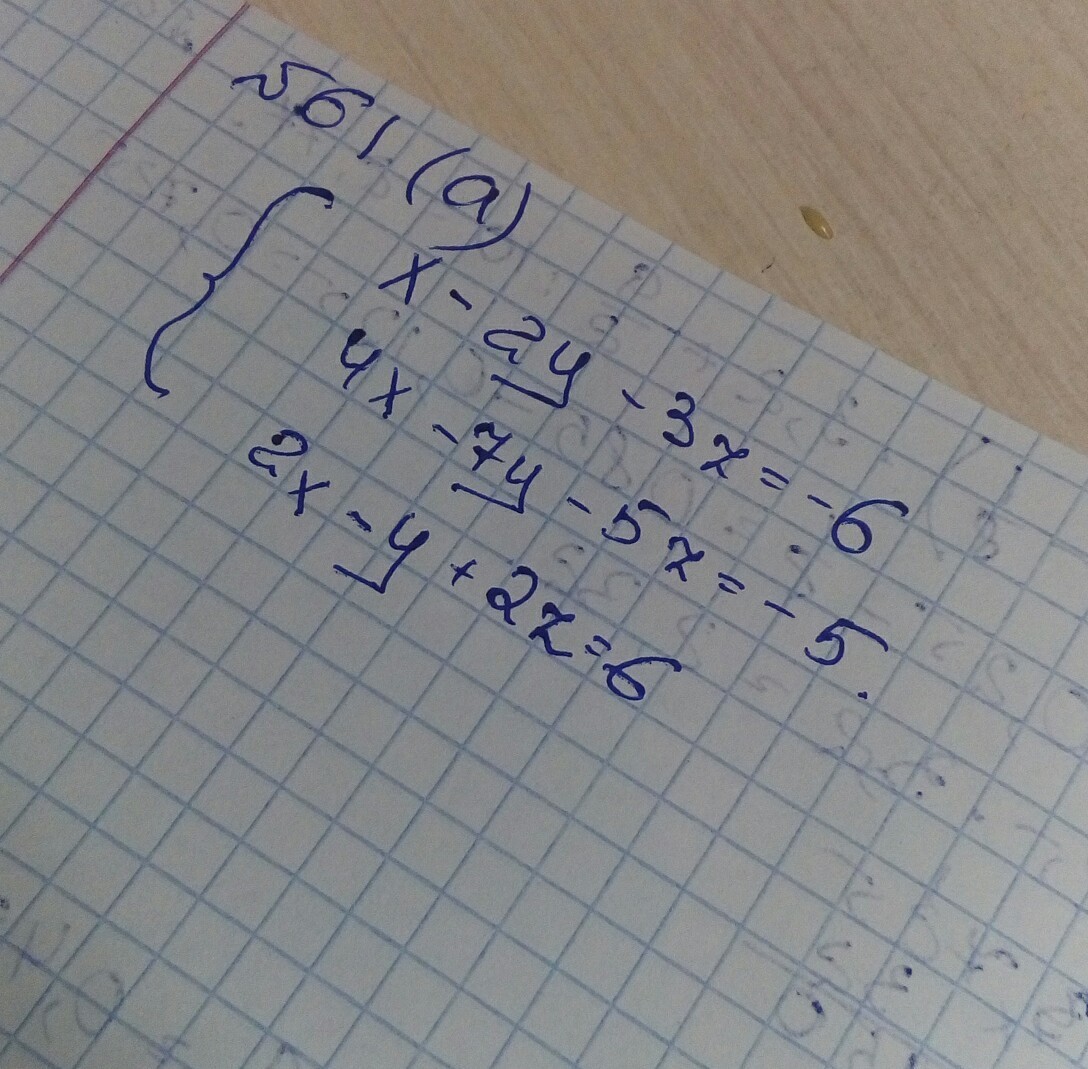 №61 (а)
x - 2y - 3z = -6
4x - 7y - 5z = -5.
2x - y + 2z = 6